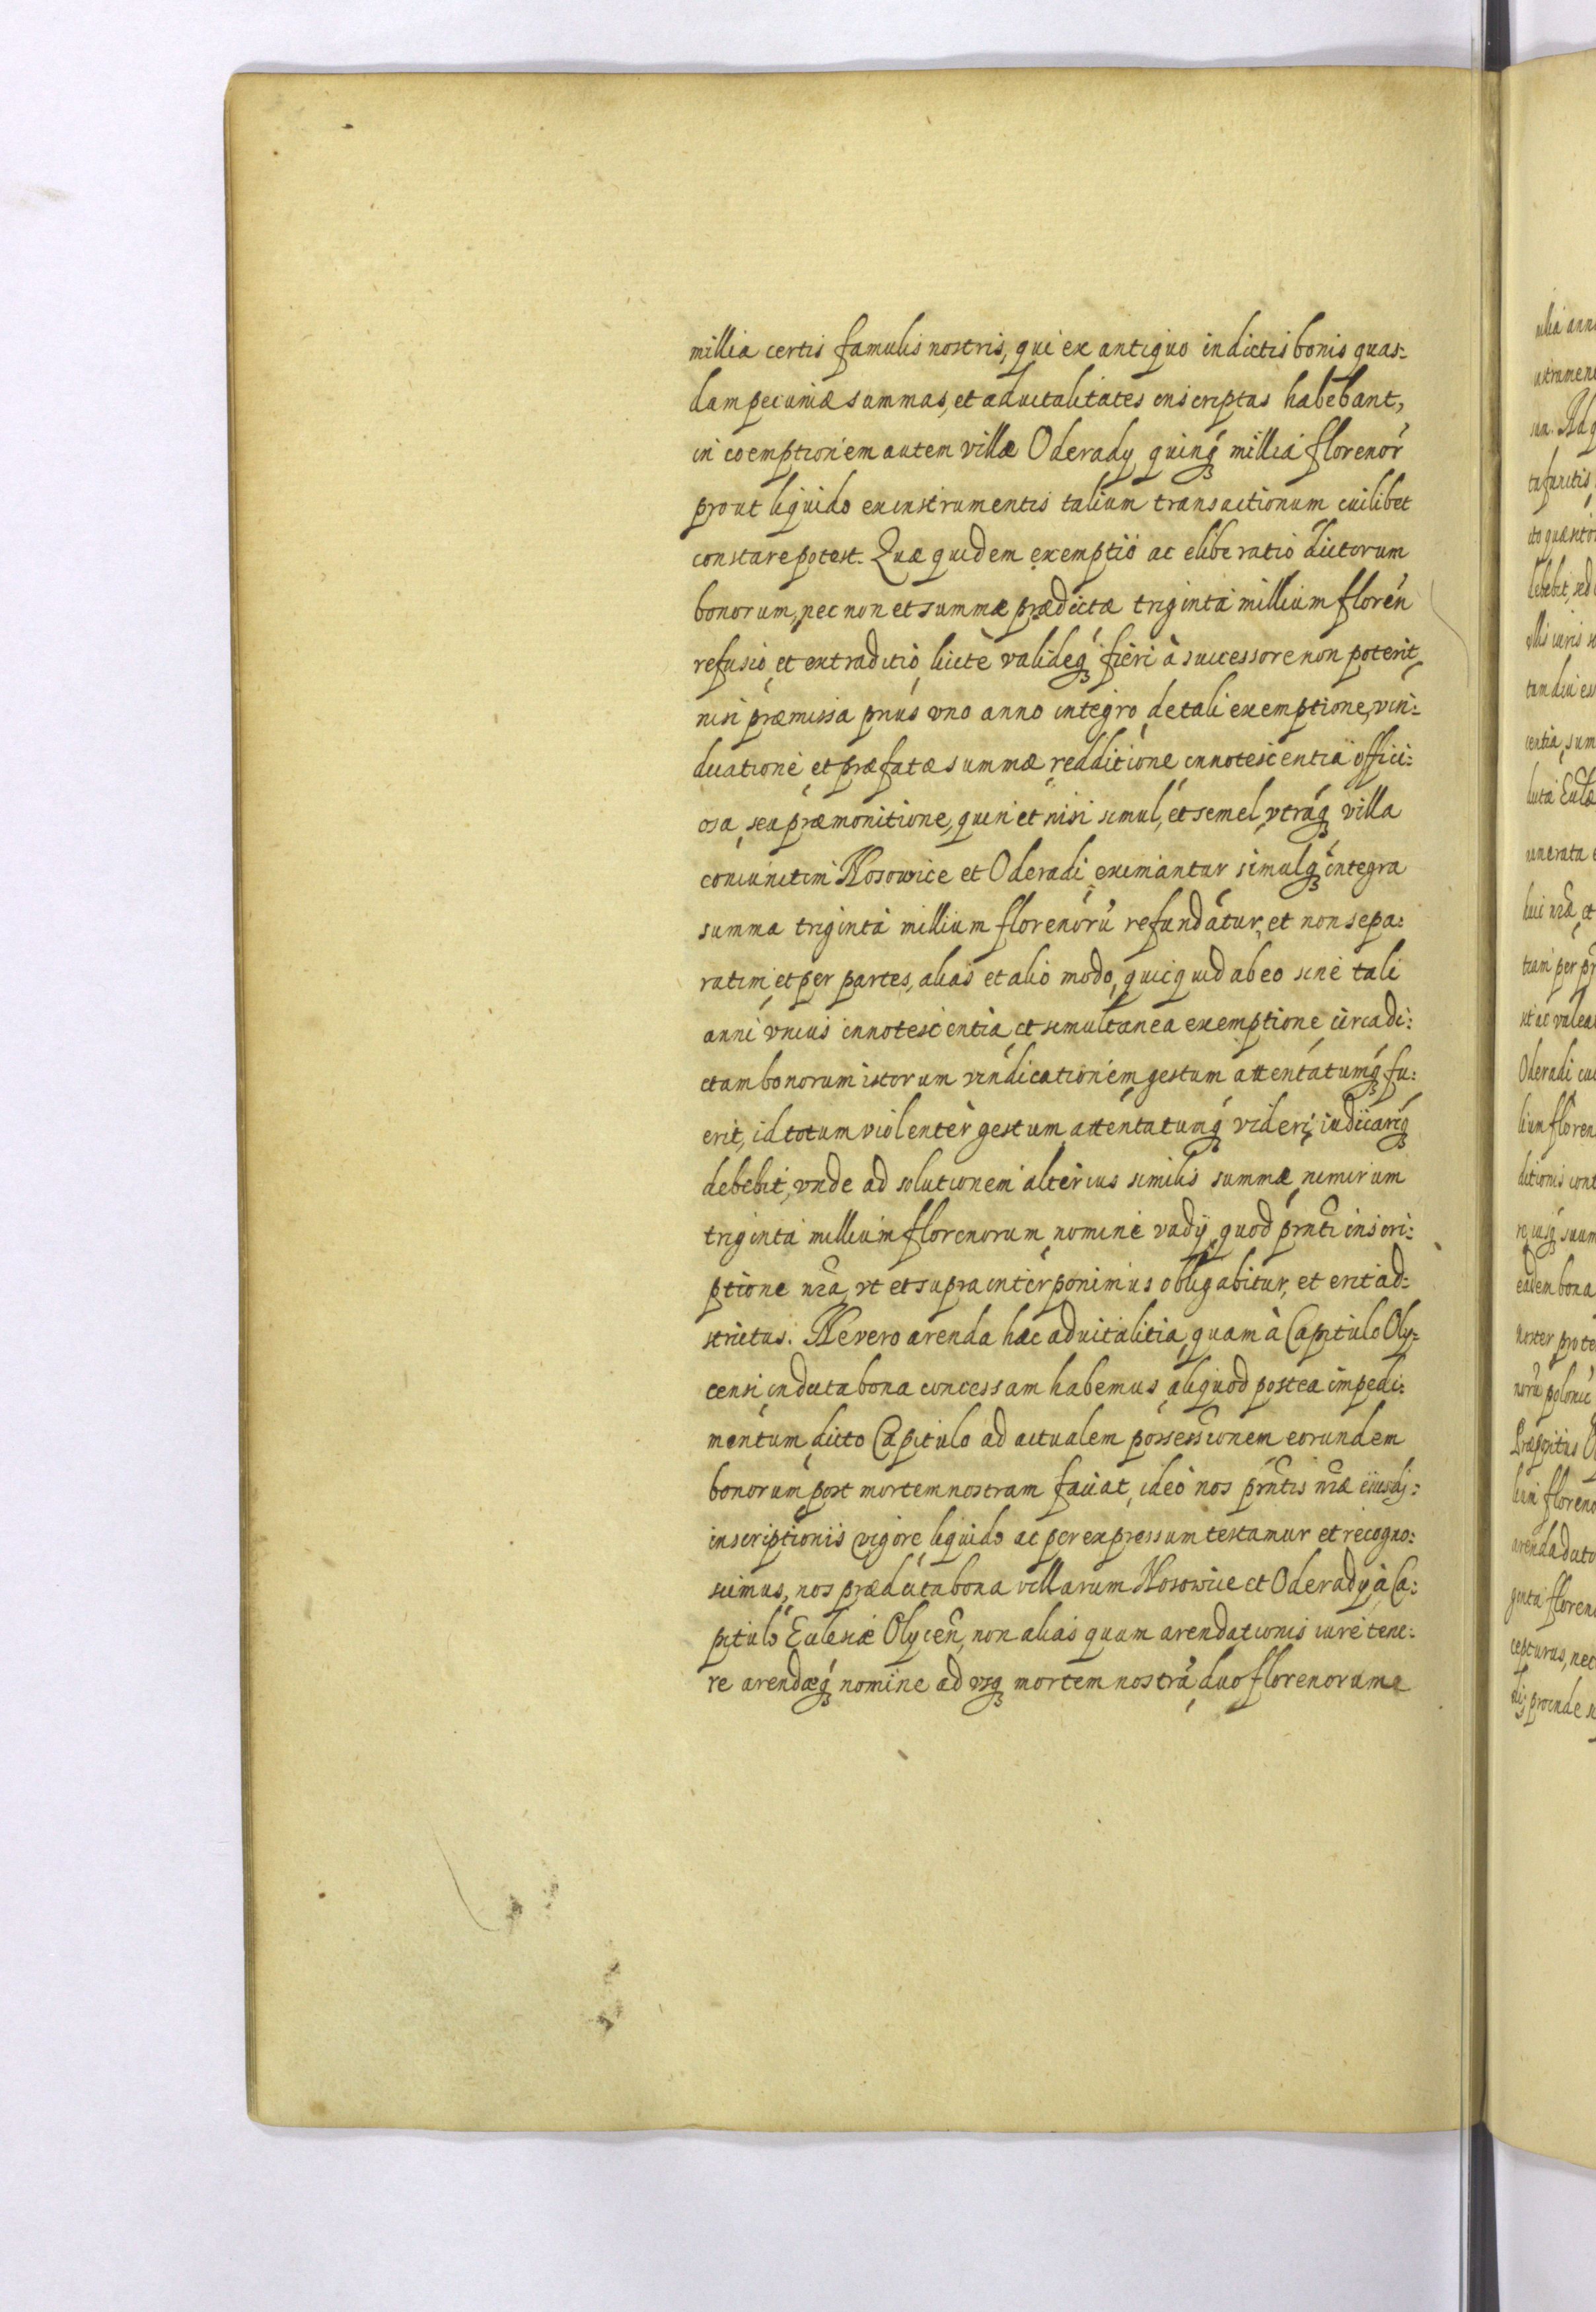 millia certis famulis nostris, qui ex antiquo in dictis bonis quas-
dam pecuniæ summas, et aduitalitates inscriptas habebant,
in coemptionem autem villæ Oderady quinq́ꝫ millia florenor̃
prout liquido ex instrumentis talium transactionum cuilibet
constare potest. Quæ quidem exemptio ac eliberatio dictorum
bonorum, nec non et summæ prædictæ triginta millium floreñ
refusio, et extraditio, licitè valideq́ꝫ fieri à successore non poterit,
nisi præmissa prius vno anno integro, de tali exemptione, vin-
dicatione et præfatæ summæ redditione innotescentia offici:
osa, seu præmonitione, quin et nisi simul, et semel, vtráqꝫ villa
coniunctim Nosowice et Oderadi eximantur simulqꝫ integra
summa triginta millium florenorũ refundatur, et non sepa:
ratim, et per partes, alias et alio modo, quicquid ab eo sine tali
anni vnius innotescentia, et simultanea exemptione, circa di:
ctam bonorum istorum vindicationem gestum attentatumq́ꝫ fu:
erit, id totum violenter gestum, attentatumq́ꝫ videri, iudicariq́ꝫ
debebit, vnde ad solutionem alterius similis summæ, nimirum
triginta millium florenorum, nomine vadij, quod prñti inscri:
ptione nr̃a, vt et supra interponimus obligabitur, et erit ad:
strictus. Ne vero arenda hæc aduitalitia, quam à Capitulo Oly-
censi, in dicta bona concessam habemus, aliquod postea impedi:
mentum, dicto Capitulo ad actualem possessionem eorundem
bonorum post mortem nostram faciat, ideò nos prñtis nr̃æ eiusdj:
inscriptionis vigore, liquido ac per expressum testamur et recogno:
scimus, nos prædicta bona villarum Nosowice et Oderady, à Ca:
pitulo Ecclesiæ Olyceñ, non alias quam arendationis iure tene:
re arendæq́ꝫ nomine ad vsqꝫ mortem nostrã, duo florenorum